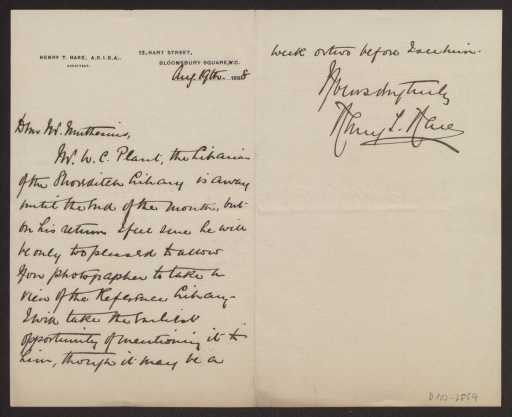 HENRY T. HARE, A.R.I.B.A.,
ARCHITECT.
13, HART STREET,
BLOOMSBURY SQUARE, W.C.
Aug 19th 1898
Dear Mr. Muthesius,
Mr. W. C. Plant, the Librarian
of the Shoreditch Library is away
until the End of the month, but
on his return I feel sure he will
be only too pleased to allow
your photographer to take a
view of the Reference Library.
I will take the Earliest
opportunity of mentioning it to
him, though it may be a
week or two before I see him.
Yours very truly
Henry T. Hare